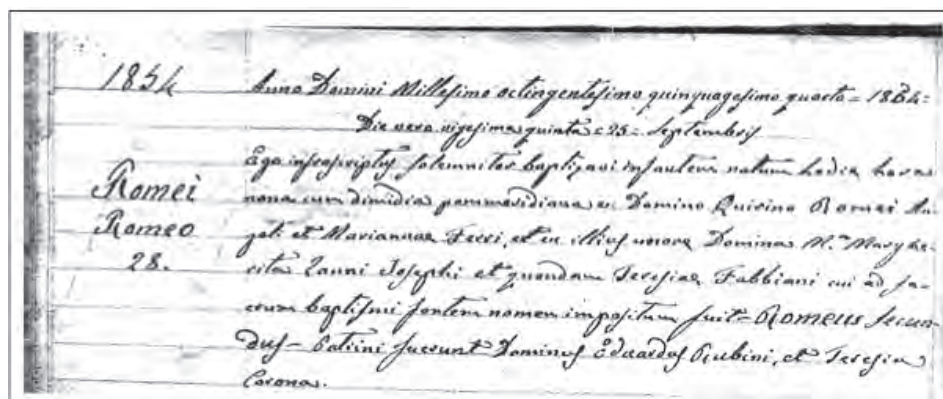 1854
Anno Domini Millesimo octingentesimo quinquagesimo quarto = 1854 =
Die vero vigesimaquinta = 25 = Septembris
Romei
Romeo
28.
Ego infrascriptus solemniter baptizavi infantem natum hodie hora
nona cum dimidia pommeridiana ex Domino Quirino Romei An-
geli et Mariannae Ferri, et ex illius uxore Domina M.a Marghe-
rita Zanni Josephi et quondam Teresiae Fabbiani cui ad sa-
crum baptismi fontem nomen impositum fuit = Romeus Secun-
dus = Patrini fuerunt Dominus Eduardus Rubini, et Teresia
Corona.